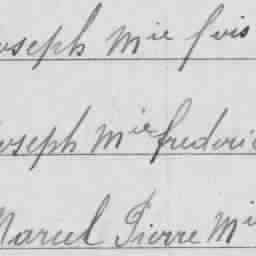 oseph Mie fois
oseph Mie frederic
Marcel Pierre Mi